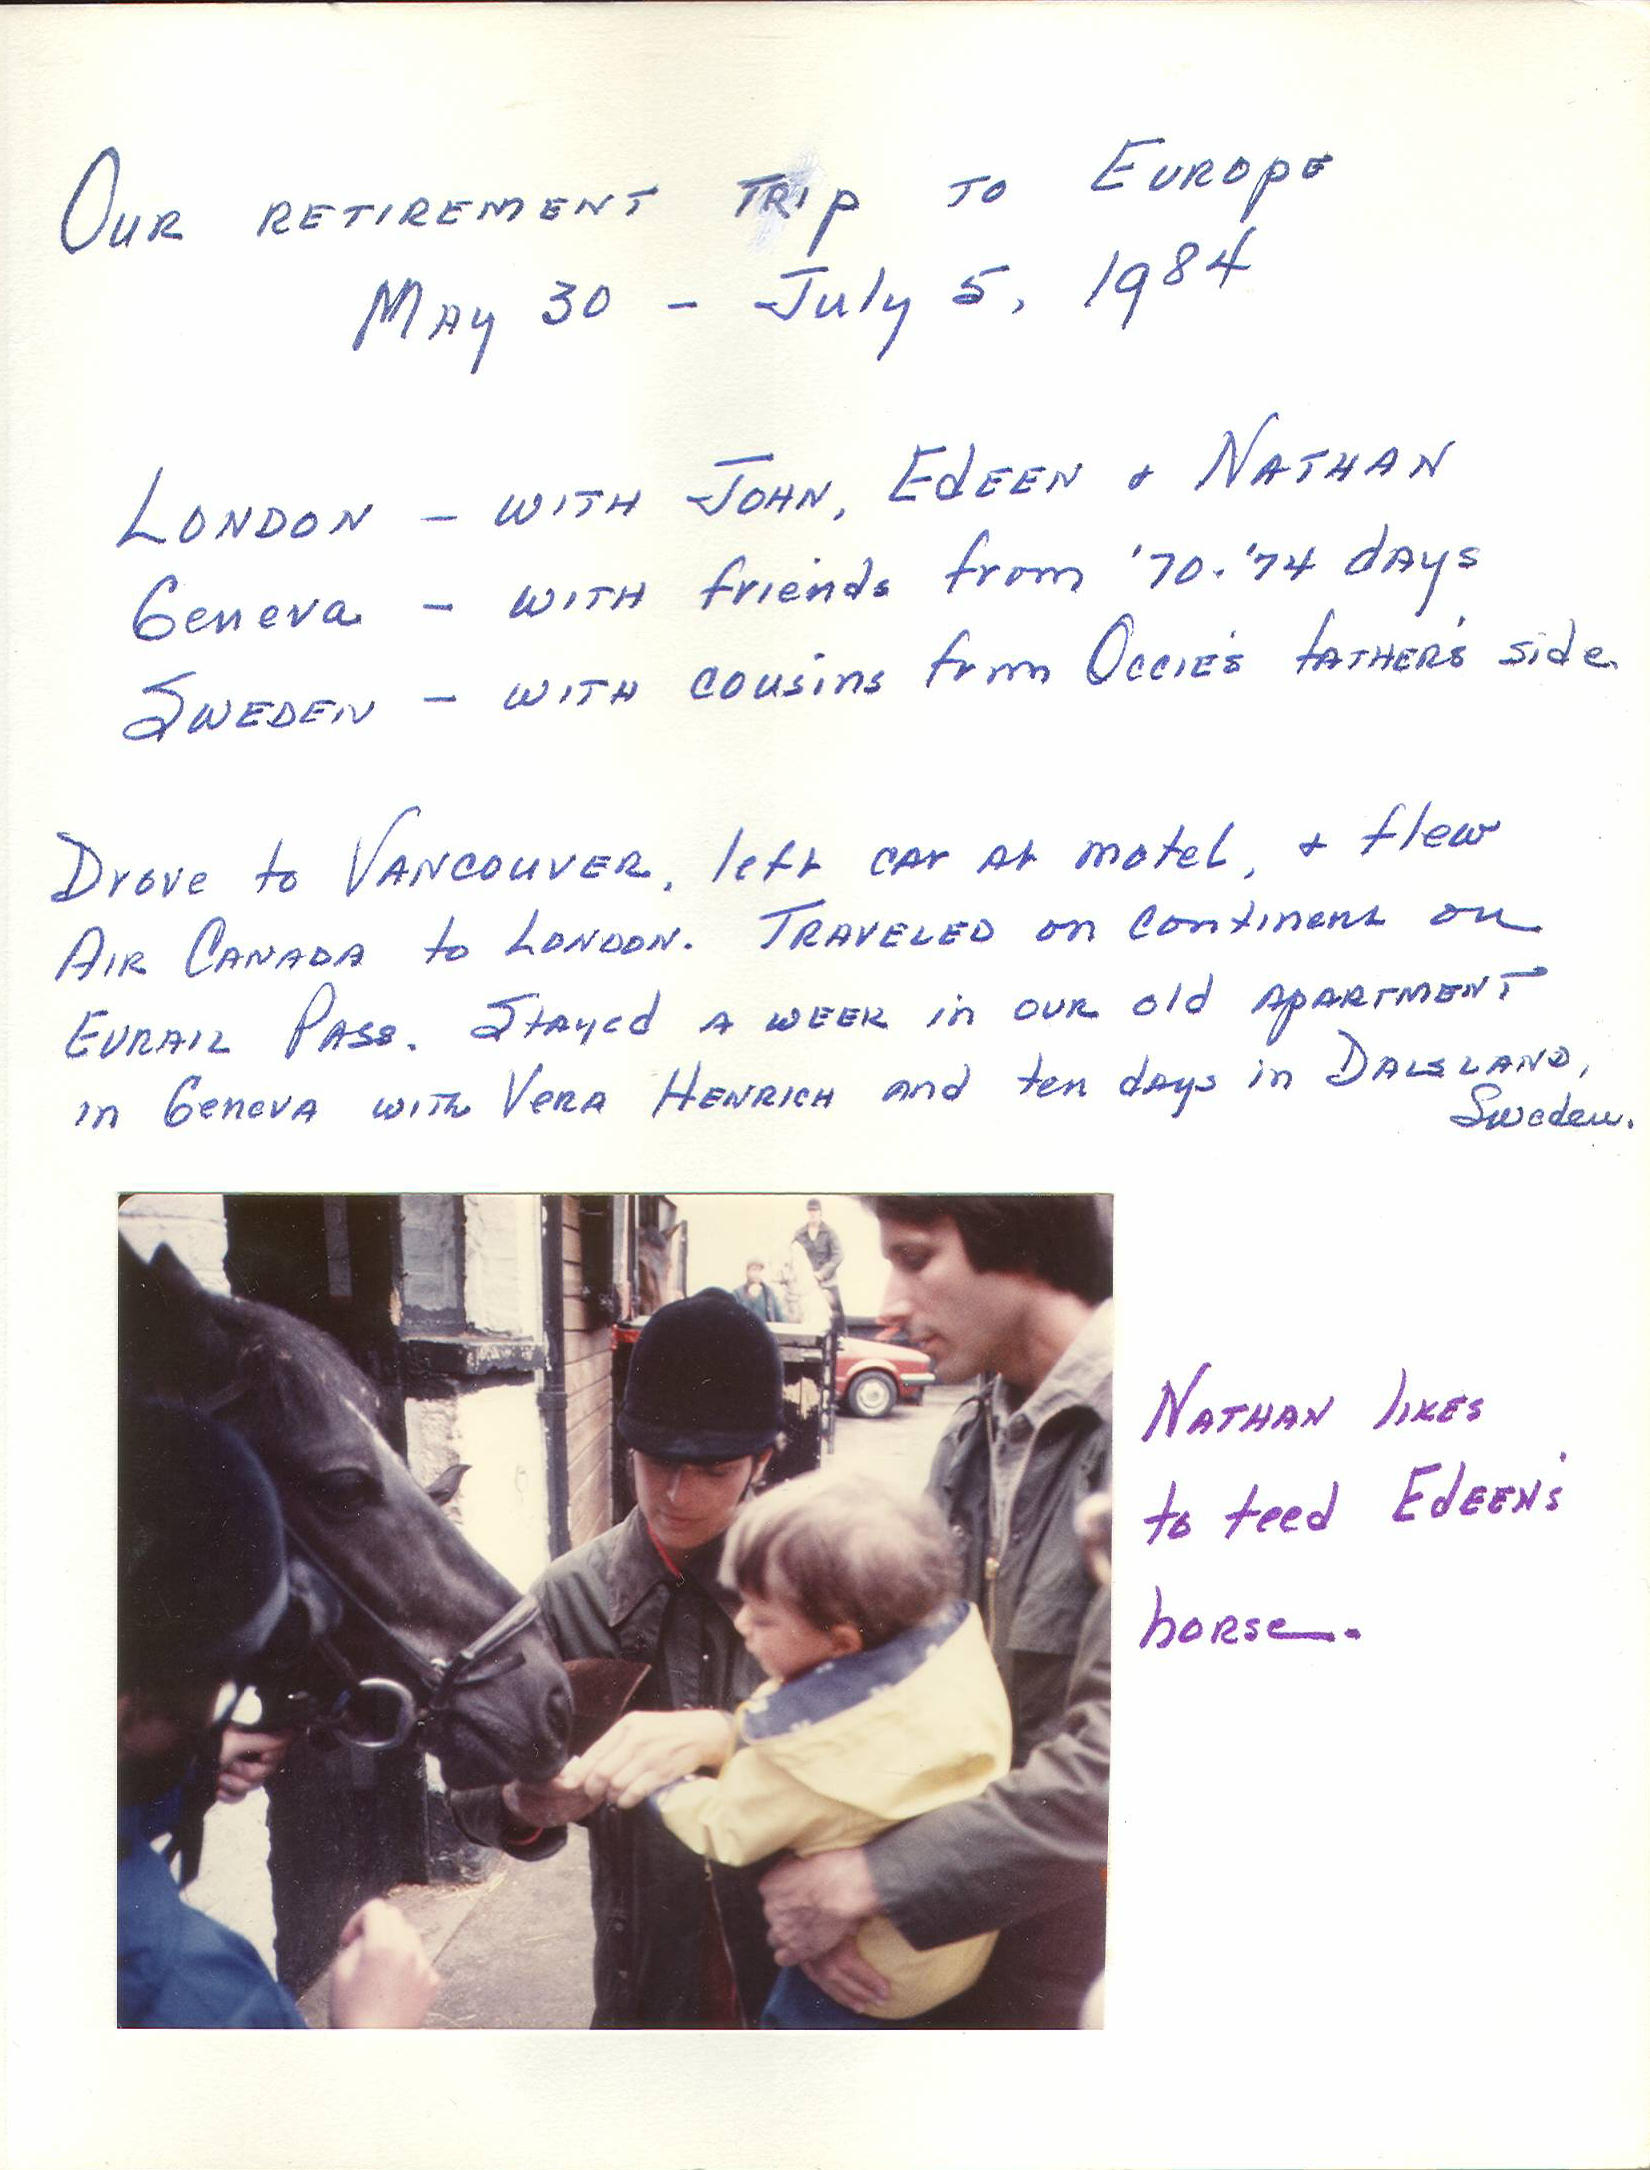 Our retirement trip to Europe
May 30 - July 5, 1984
London - with John, Edeen & Nathan
Geneva - with friends from '70-'74 days
Sweden - with cousins from Occie's father's side
Drove to Vancouver, left car at motel, & flew
Air Canada to London. Traveled on continent on
Eurail Pass. Stayed a week in our old apartment
in Geneva with Vera Henrich and ten days in Dalsland,
Sweden.
Nathan likes
to feed Edeen's
horse.